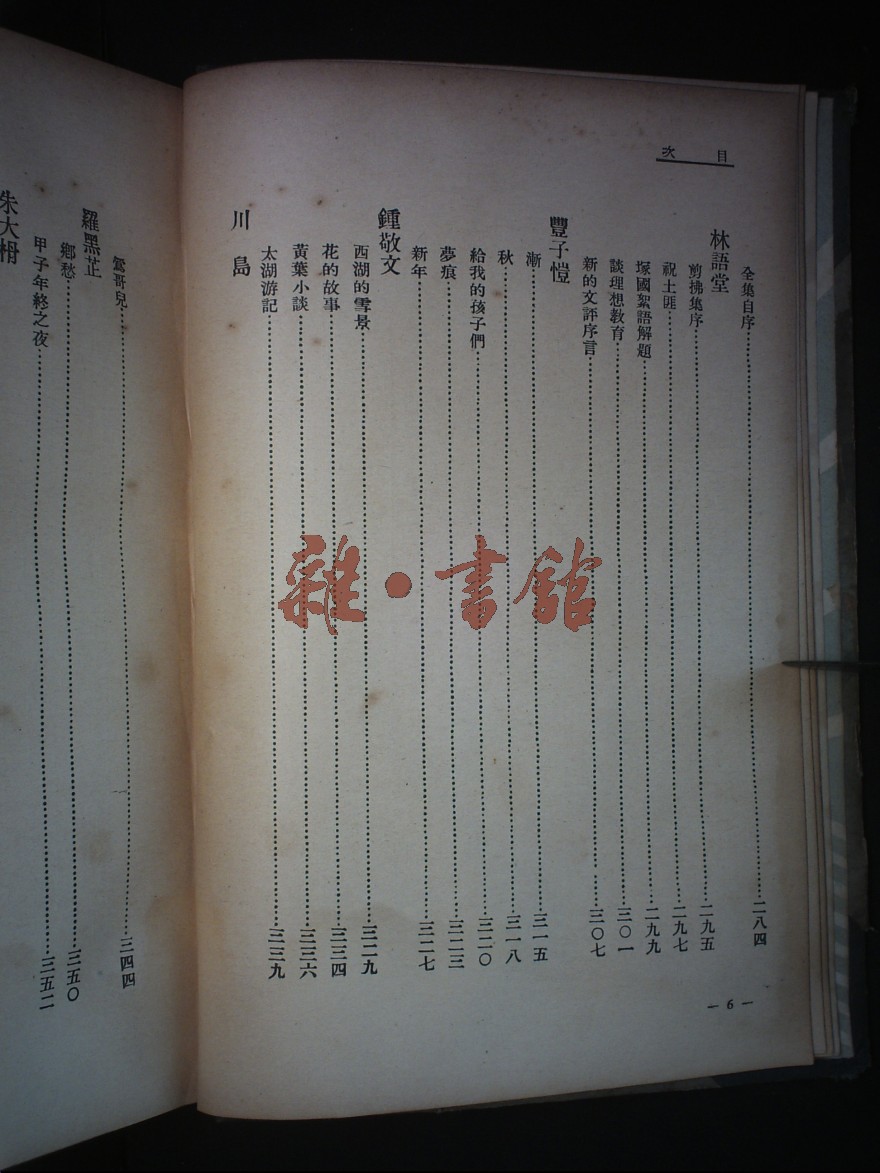 目次
全集自序 二八四
林語堂
剪拂集序 二九五
祝土匪 二九七
塚國絮語解題 二九九
談理想教育 三〇一
新的文評序言 三〇七
豐子愷
漸 三一五
秋 三一八
給我的孩子們 三二〇
夢痕 三二三
新年 三二七
鍾敬文
西湖的雪景 三二九
花的故事 三三四
黃葉小談 三三六
太湖游記 三三九
川島
— 6 —
鴛哥兒 三四四
羅黑芷
鄉愁 三五〇
甲子年終之夜 三五二
朱大枬
雜·書館